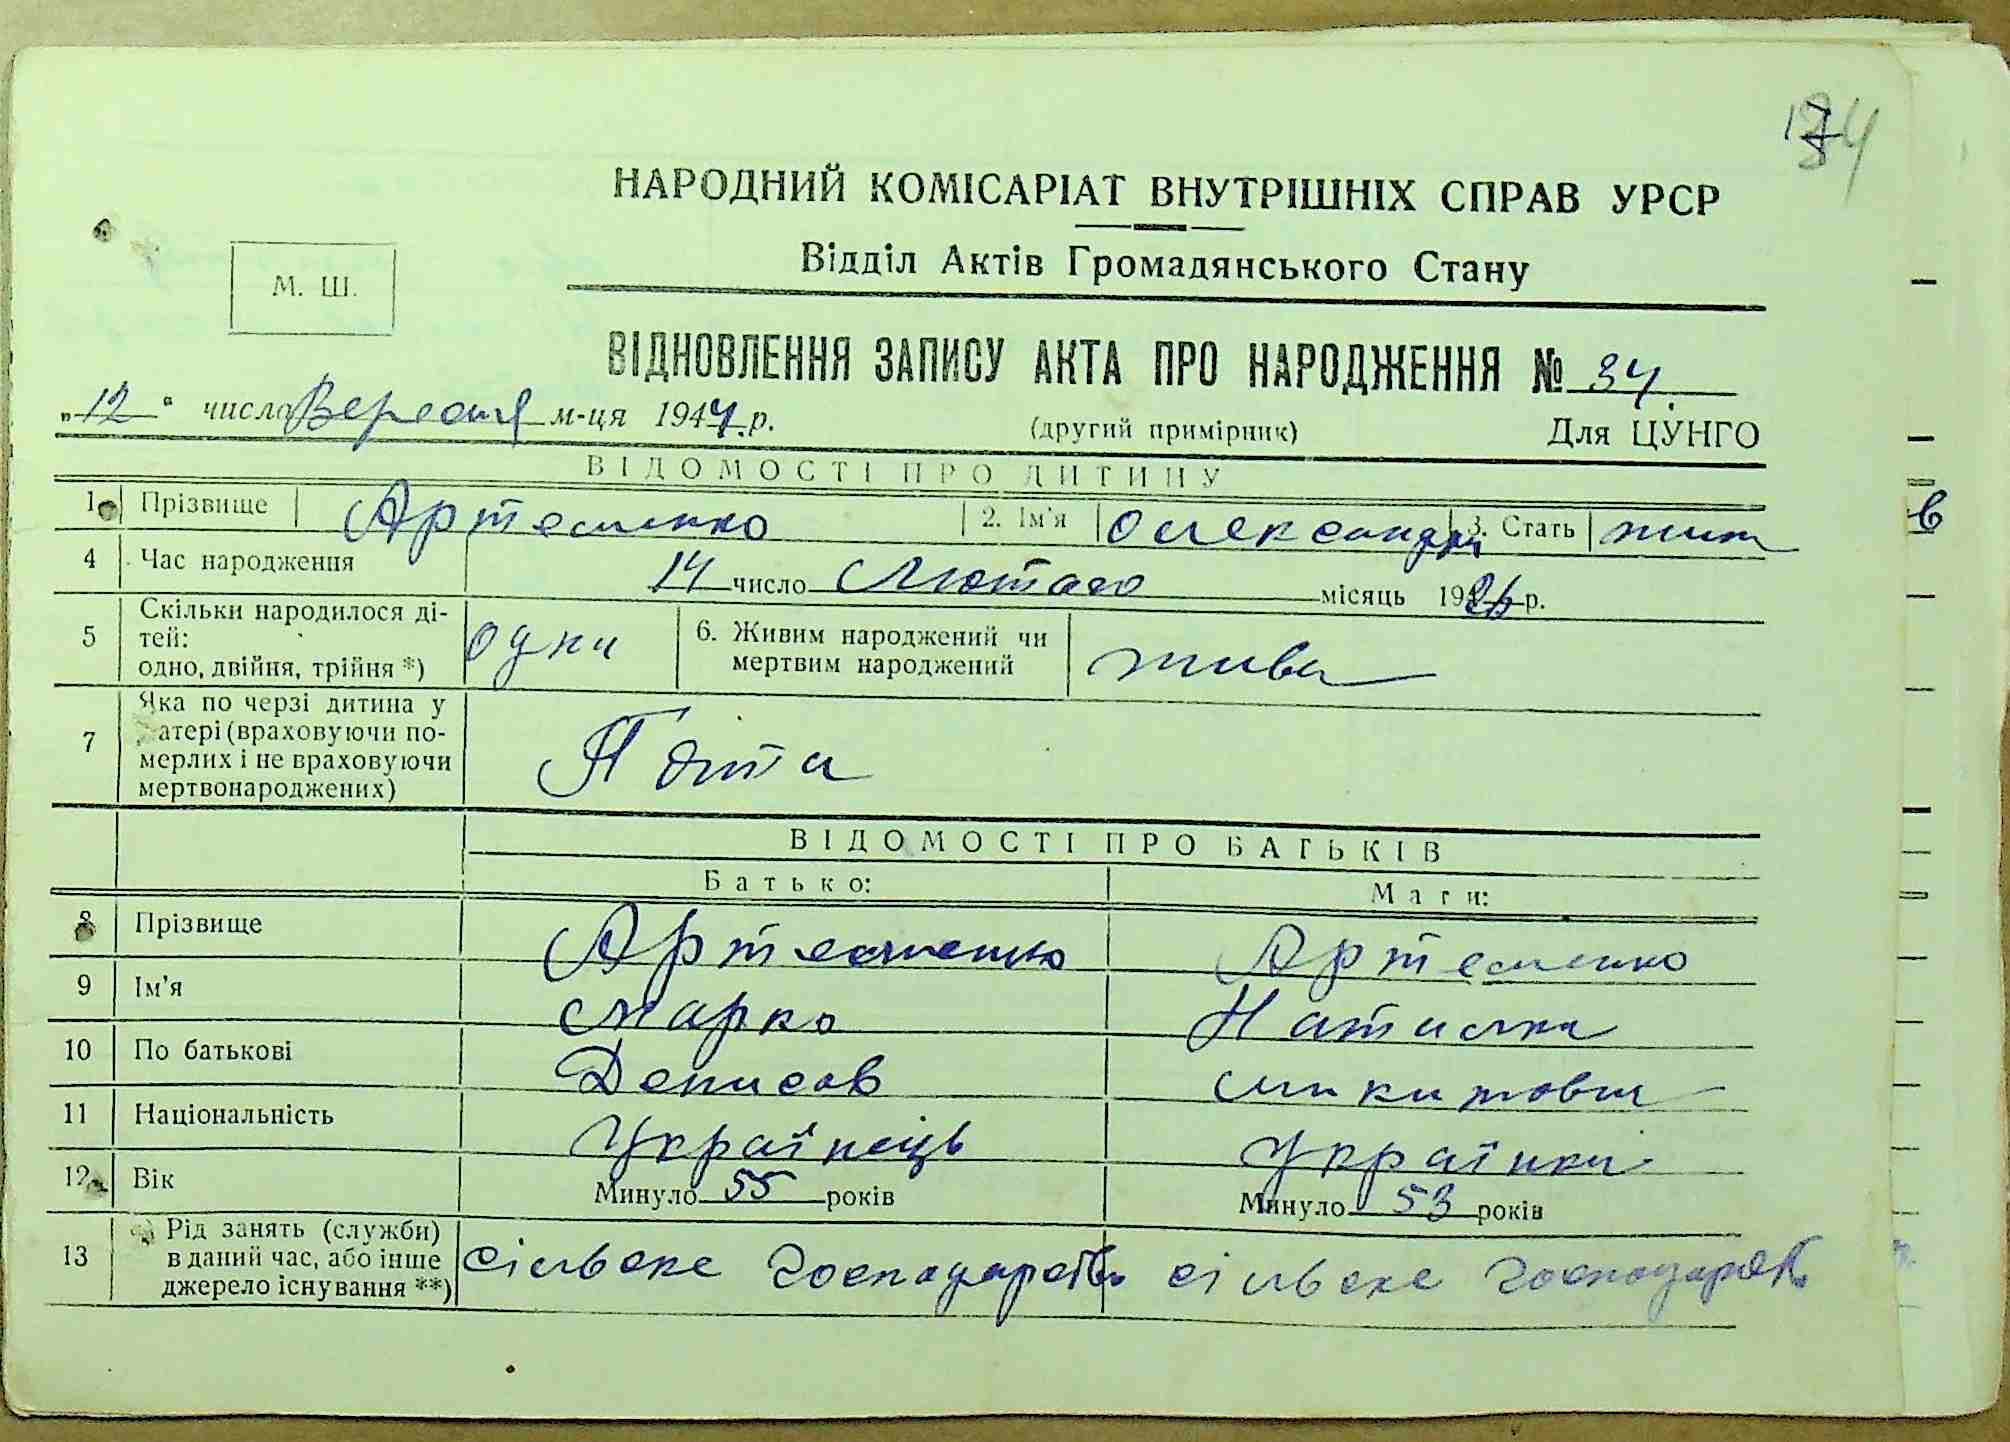 НАРОДНИЙ КОМІСАРІАТ ВНУТРІШНІХ СПРАВ УРСР
Відділ Актів Громадянського Стану
М. Ш.
ВІДНОВЛЕННЯ ЗАПИСУ АКТА ПРО НАРОДЖЕННЯ № 34
„12“ число Вересня м-ця 1944 р. (другий примірник) Для ЦУНГО
ВІДОМОСТІ ПРО ДИТИНУ
1 Прізвище Артеменко 2. Ім'я Олександра 3. Стать жин
4 Час народження 14 число Лютого місяць 1926 р.
5 Скільки народилося ді-
тей:
одно, двійня, трійня *) одна 6. Живим народжений чи
мертвим народжений жива
7 Яка по черзі дитина у
матері (враховуючи по-
мерлих і не враховуючи
мертвонароджених) П'ята
ВІДОМОСТІ ПРО БАТЬКІВ
Батько: Мати:
8 Прізвище Артеменко Артеменко
9 Ім'я Марко Наталка
10 По батькові Денисов Микитовна
11 Національність Українець Українка
12 Вік Минуло 55 років Минуло 53 років
13 Рід занять (служби)
в даний час, або інше
джерело існування **) сільське господарств. сільське господарств.